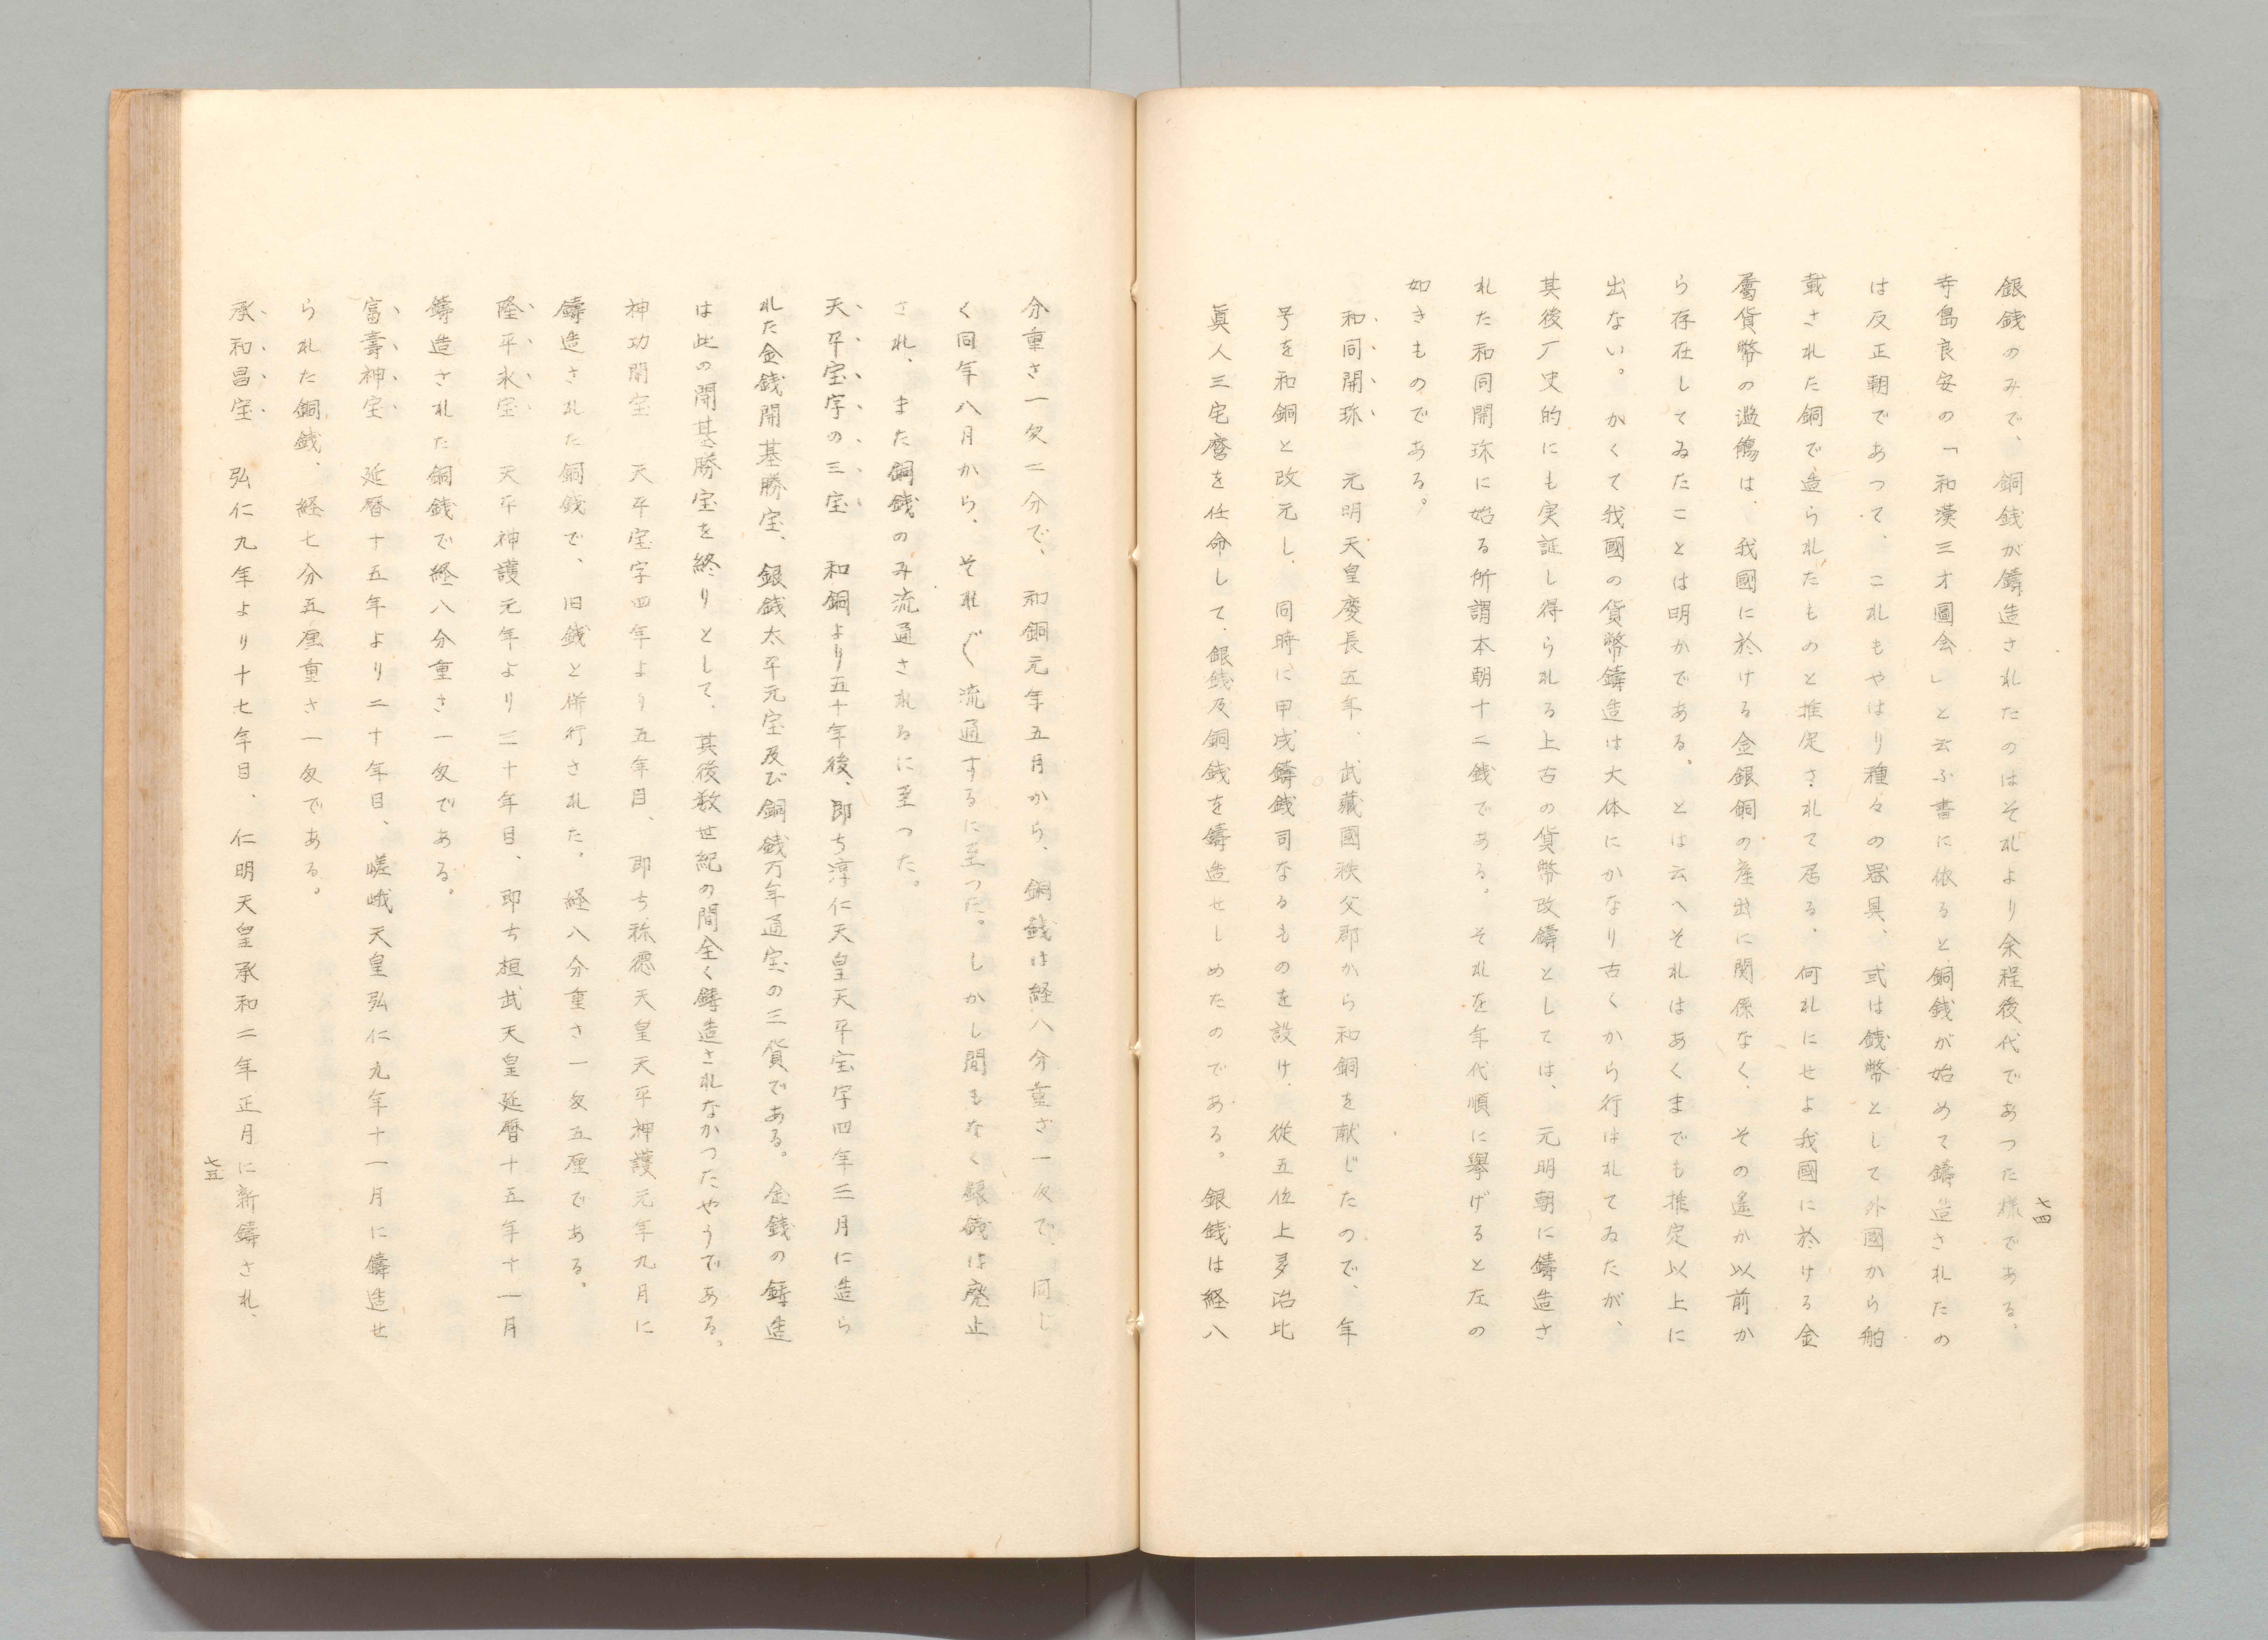 銀銭のみで、銅銭が鑄造されたのはそれより余程後代であつた様である。
寺島良安の「和漢三才圖会」と云ふ書に依ると、銅銭が始めて鑄造されたの
は反正朝であつて、これもやはり種々の器具、或は銭幣として外國から舶
載された銅で造られたものと推定されて居る。何れにせよ我國に於ける金
屬貨幣の濫觴は、我國に於ける金銀銅の産出に関係なく、その遙か以前か
ら存在してゐたことは明かである。とは云へそれはあくまでも推定以上に
出ない。かくて我國の貨幣鑄造は大体にかなり古くから行はれてゐたが、
其後厂史的にも実証し得られる上古の貨幣改鑄としては、元明朝に鑄造さ
れた和同開珎に始る所謂本朝十二銭である。それを年代順に擧げると左の
如きものである。
和同開珎　元明天皇慶長五年、武藏國秩父郡から和銅を献じたので、年
号を和銅と改元し、同時に甲戌鑄銭司なるものを設け、從五位上多治比
眞人三宅麿を任命して、銀銭及銅銭を鑄造せしめたのである。銀銭は経八
七四
分重さ一匁二分で、和銅元年五月から、銅銭は経八分重さ一匁で、同じ
く同年八月から、それ〴〵流通するに至つた。しかし間もなく銀銭は廃止
され、また銅銭のみ流通されるに至つた。
天平宝字の三宝　和銅より五十年後、即ち淳仁天皇天平宝字四年三月に造ら
れた金銭開基勝宝、銀銭太平元宝及び銅銭万年通宝の三貨である。金銭の鑄造
は此の開基勝宝を終りとして、其後数世紀の間全く鑄造されなかつたやうである。
神功開宝　天平宝字四年より五年目、即ち称德天皇天平神護元年九月に
鑄造された銅銭で、旧銭と併行された。経八分重さ一匁五厘である。
隆平永宝　天平神護元年より三十年目、即ち桓武天皇延暦十五年十一月
鑄造された銅銭で経八分重さ一匁である。
富壽神宝　延暦十五年より二十年目、嵯峨天皇弘仁九年十一月に鑄造せ
られた銅銭、経七分五厘重さ一匁である。
承和昌宝　弘仁九年より十七年目、仁明天皇承和二年正月に新鑄され、
七五